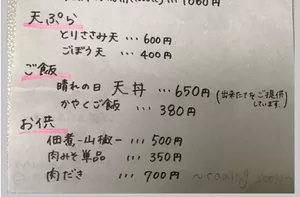 1060円
天ぷら
とりささみ天 … 600円
ごぼう天 … 400円
ご飯
晴れの日 天丼 … 650円 (出来たてをご提供しています。)
かやくご飯 … 380円
お供
佃煮-山椒- … 500円
肉みそ単品 … 350円
肉だき … 700円 ~coming soon~